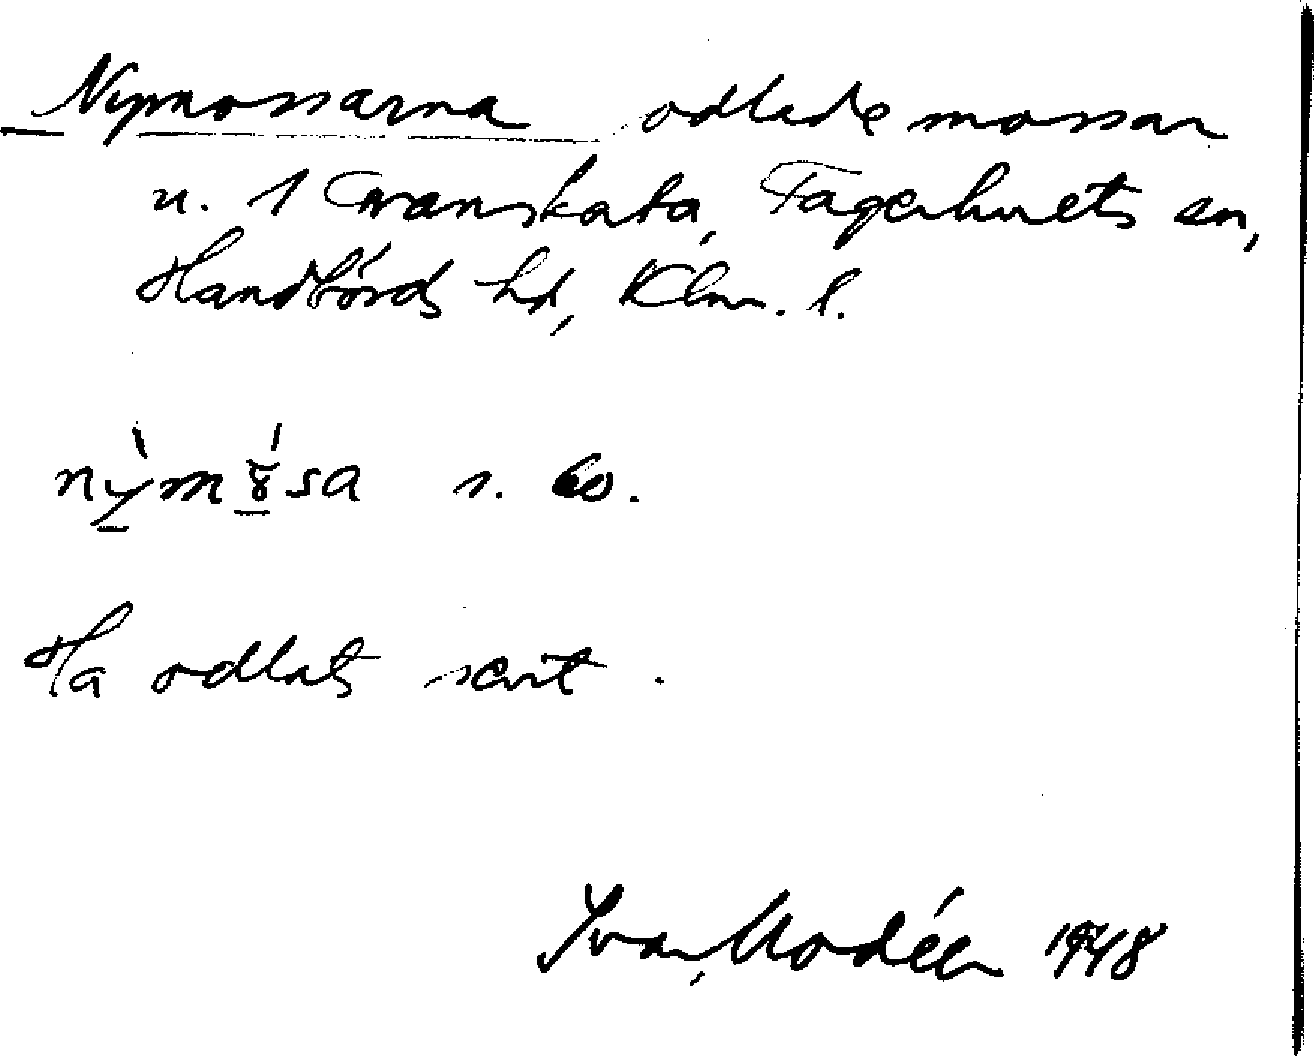 Nymossarna odlade mossar
u. 1 Tvanskata, Fagerhults sn,
Handbörds hd, Klm. l.
nýmósa s. bo.
Ha odlats sent.
Ivar Modéer 1948